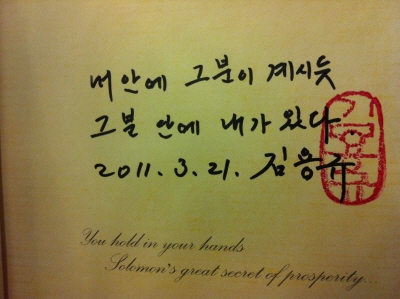 내 안에 그분이 계시듯
그분 안에 내가 있다
2011. 3. 21. 김용규
You hold in your hands
Solomon's great secret of prosperity...